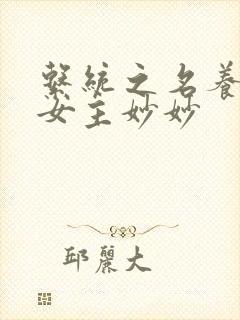 繫統之名養
女主妙妙
邱麗大